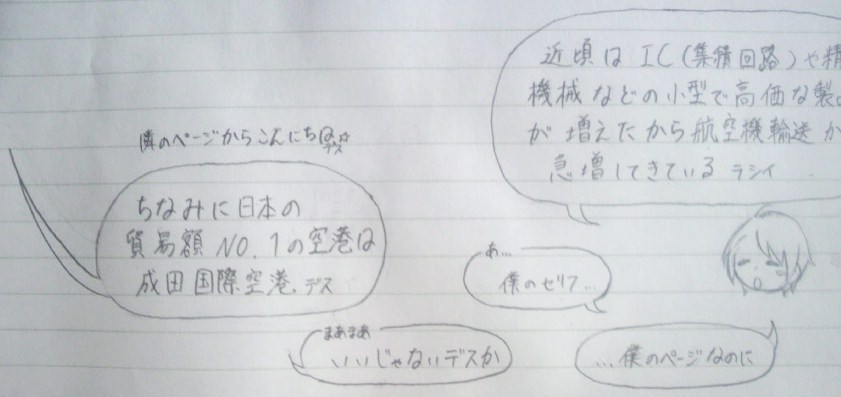 近頃は IC(集積回路)や精
機械などの小型で高価な製
が増えたから航空機輸送が
急増してきているラシイ
隣のページからこんにちはデス☆
ちなみに日本の
貿易額 NO.1の空港は
成田国際空港.デス
あ…
僕のセリフ…
まあまあ
いいじゃないデスか
…僕のページなのに